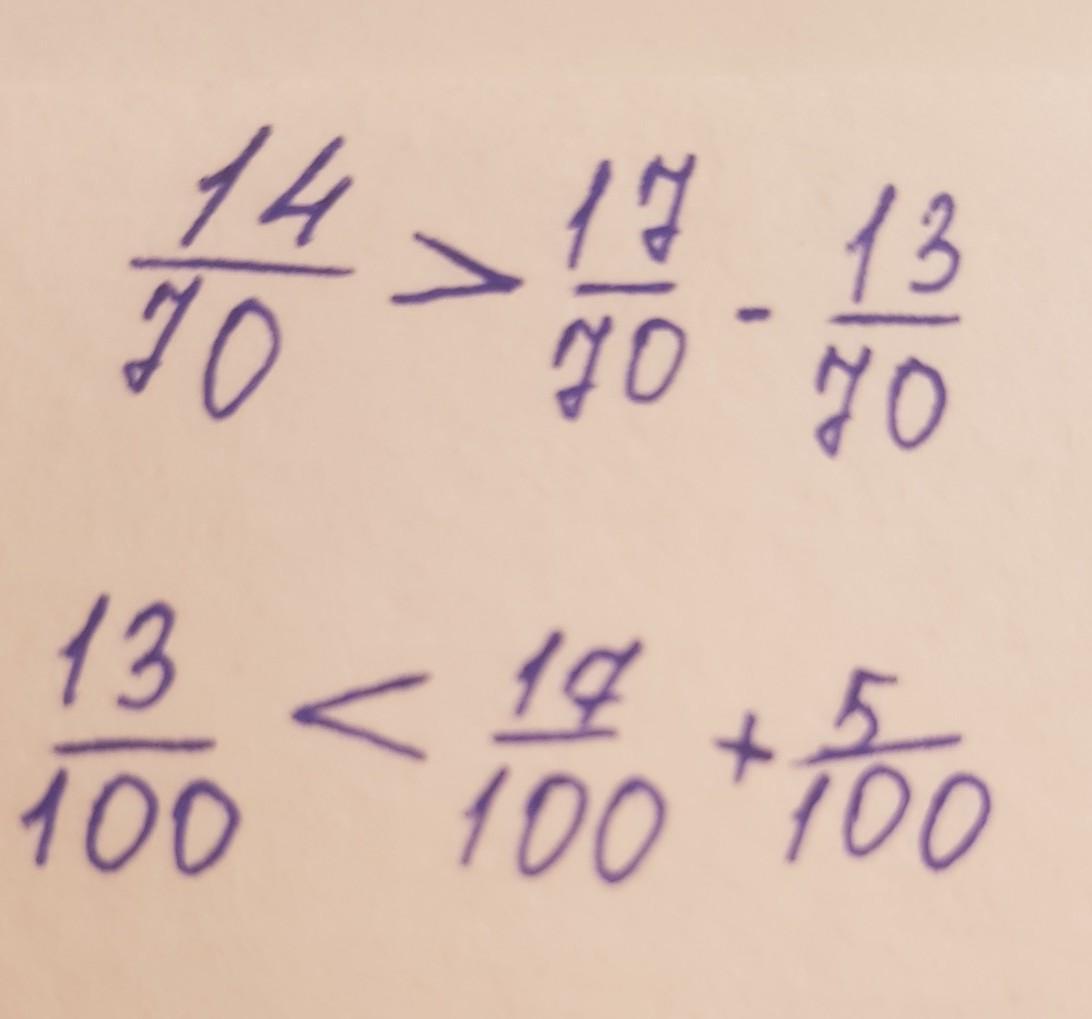 14/70 > 17/70 - 13/70
13/100 < 17/100 + 5/100